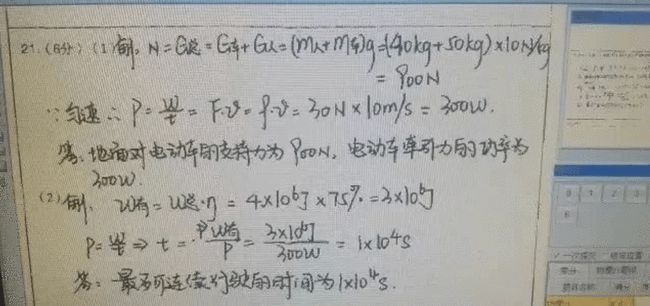 21.(6分) (1)解: N=G总=G车+G人=(m人+m车)g=(40kg+50kg)×10N/kg
=900N
∵匀速∴P=W/t=F·v=f·v=30N×10m/s=300W.
答:地面对电动车的支持力为900N,电动车牵引力的功率为
300W.
(2)解. W有=W总·η=4×10⁶J×75%=3×10⁶J
P=W/t⇒t=W有/P=3×10⁶J/300W=1×10⁴s
答:最多可连续行驶的时间为1×10⁴s.